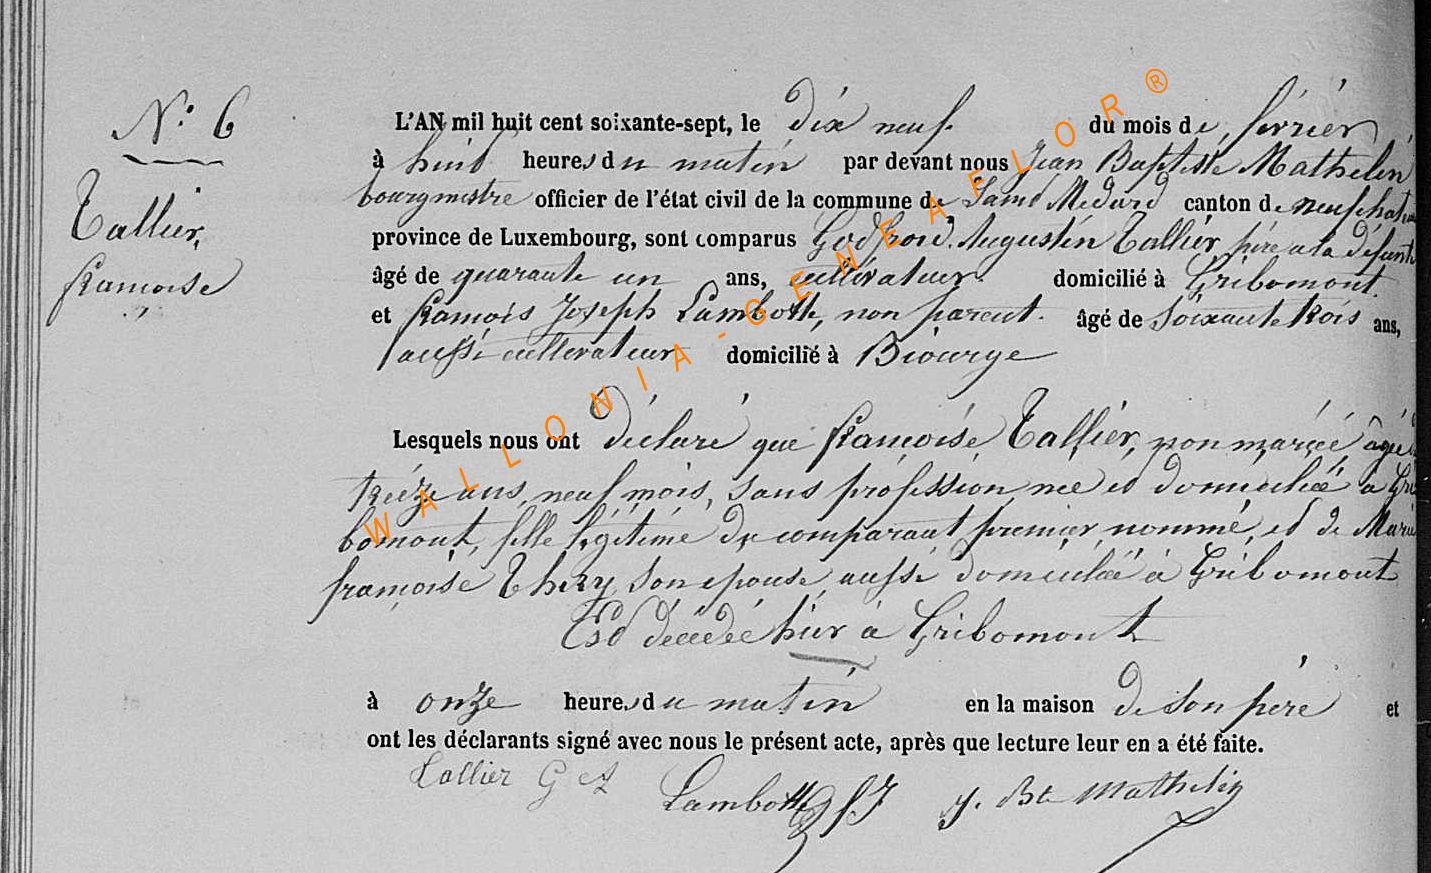 N° 6
Tallier,
françoise
L'AN mil huit cent soixante-sept, le dix neuf du mois de février
à huit heures du matin par devant nous Jean Baptiste Mathelin
bourgmestre officier de l'état civil de la commune de Saint Médard canton de neufchateau
province de Luxembourg, sont comparus Godfroid Augustin Tallier père a la défunte
âgé de quarante un ans, cultivateur domicilié à Gribomont
et françois Joseph Lambotte, non parent. âgé de soixante trois ans,
aussi cultivateur domicilié à Biourge
Lesquels nous ont déclaré que françoise Tallier, non mariée, âgée de
treize ans, neuf mois, sans profession née et domiciliée a Gri
bomont, fille légitime du comparant premier nommé, et de Marie
françoise Thiry, son epouse, aussi domiciliée à Gribomont
Est décédée hier à Gribomont
à onze heures du matin en la maison de son père et
ont les déclarants signé avec nous le présent acte, après que lecture leur en a été faite.
Tallier G A Lambotte f J J. Bte Mathelin
WALLONIA-GENEAFLOR®